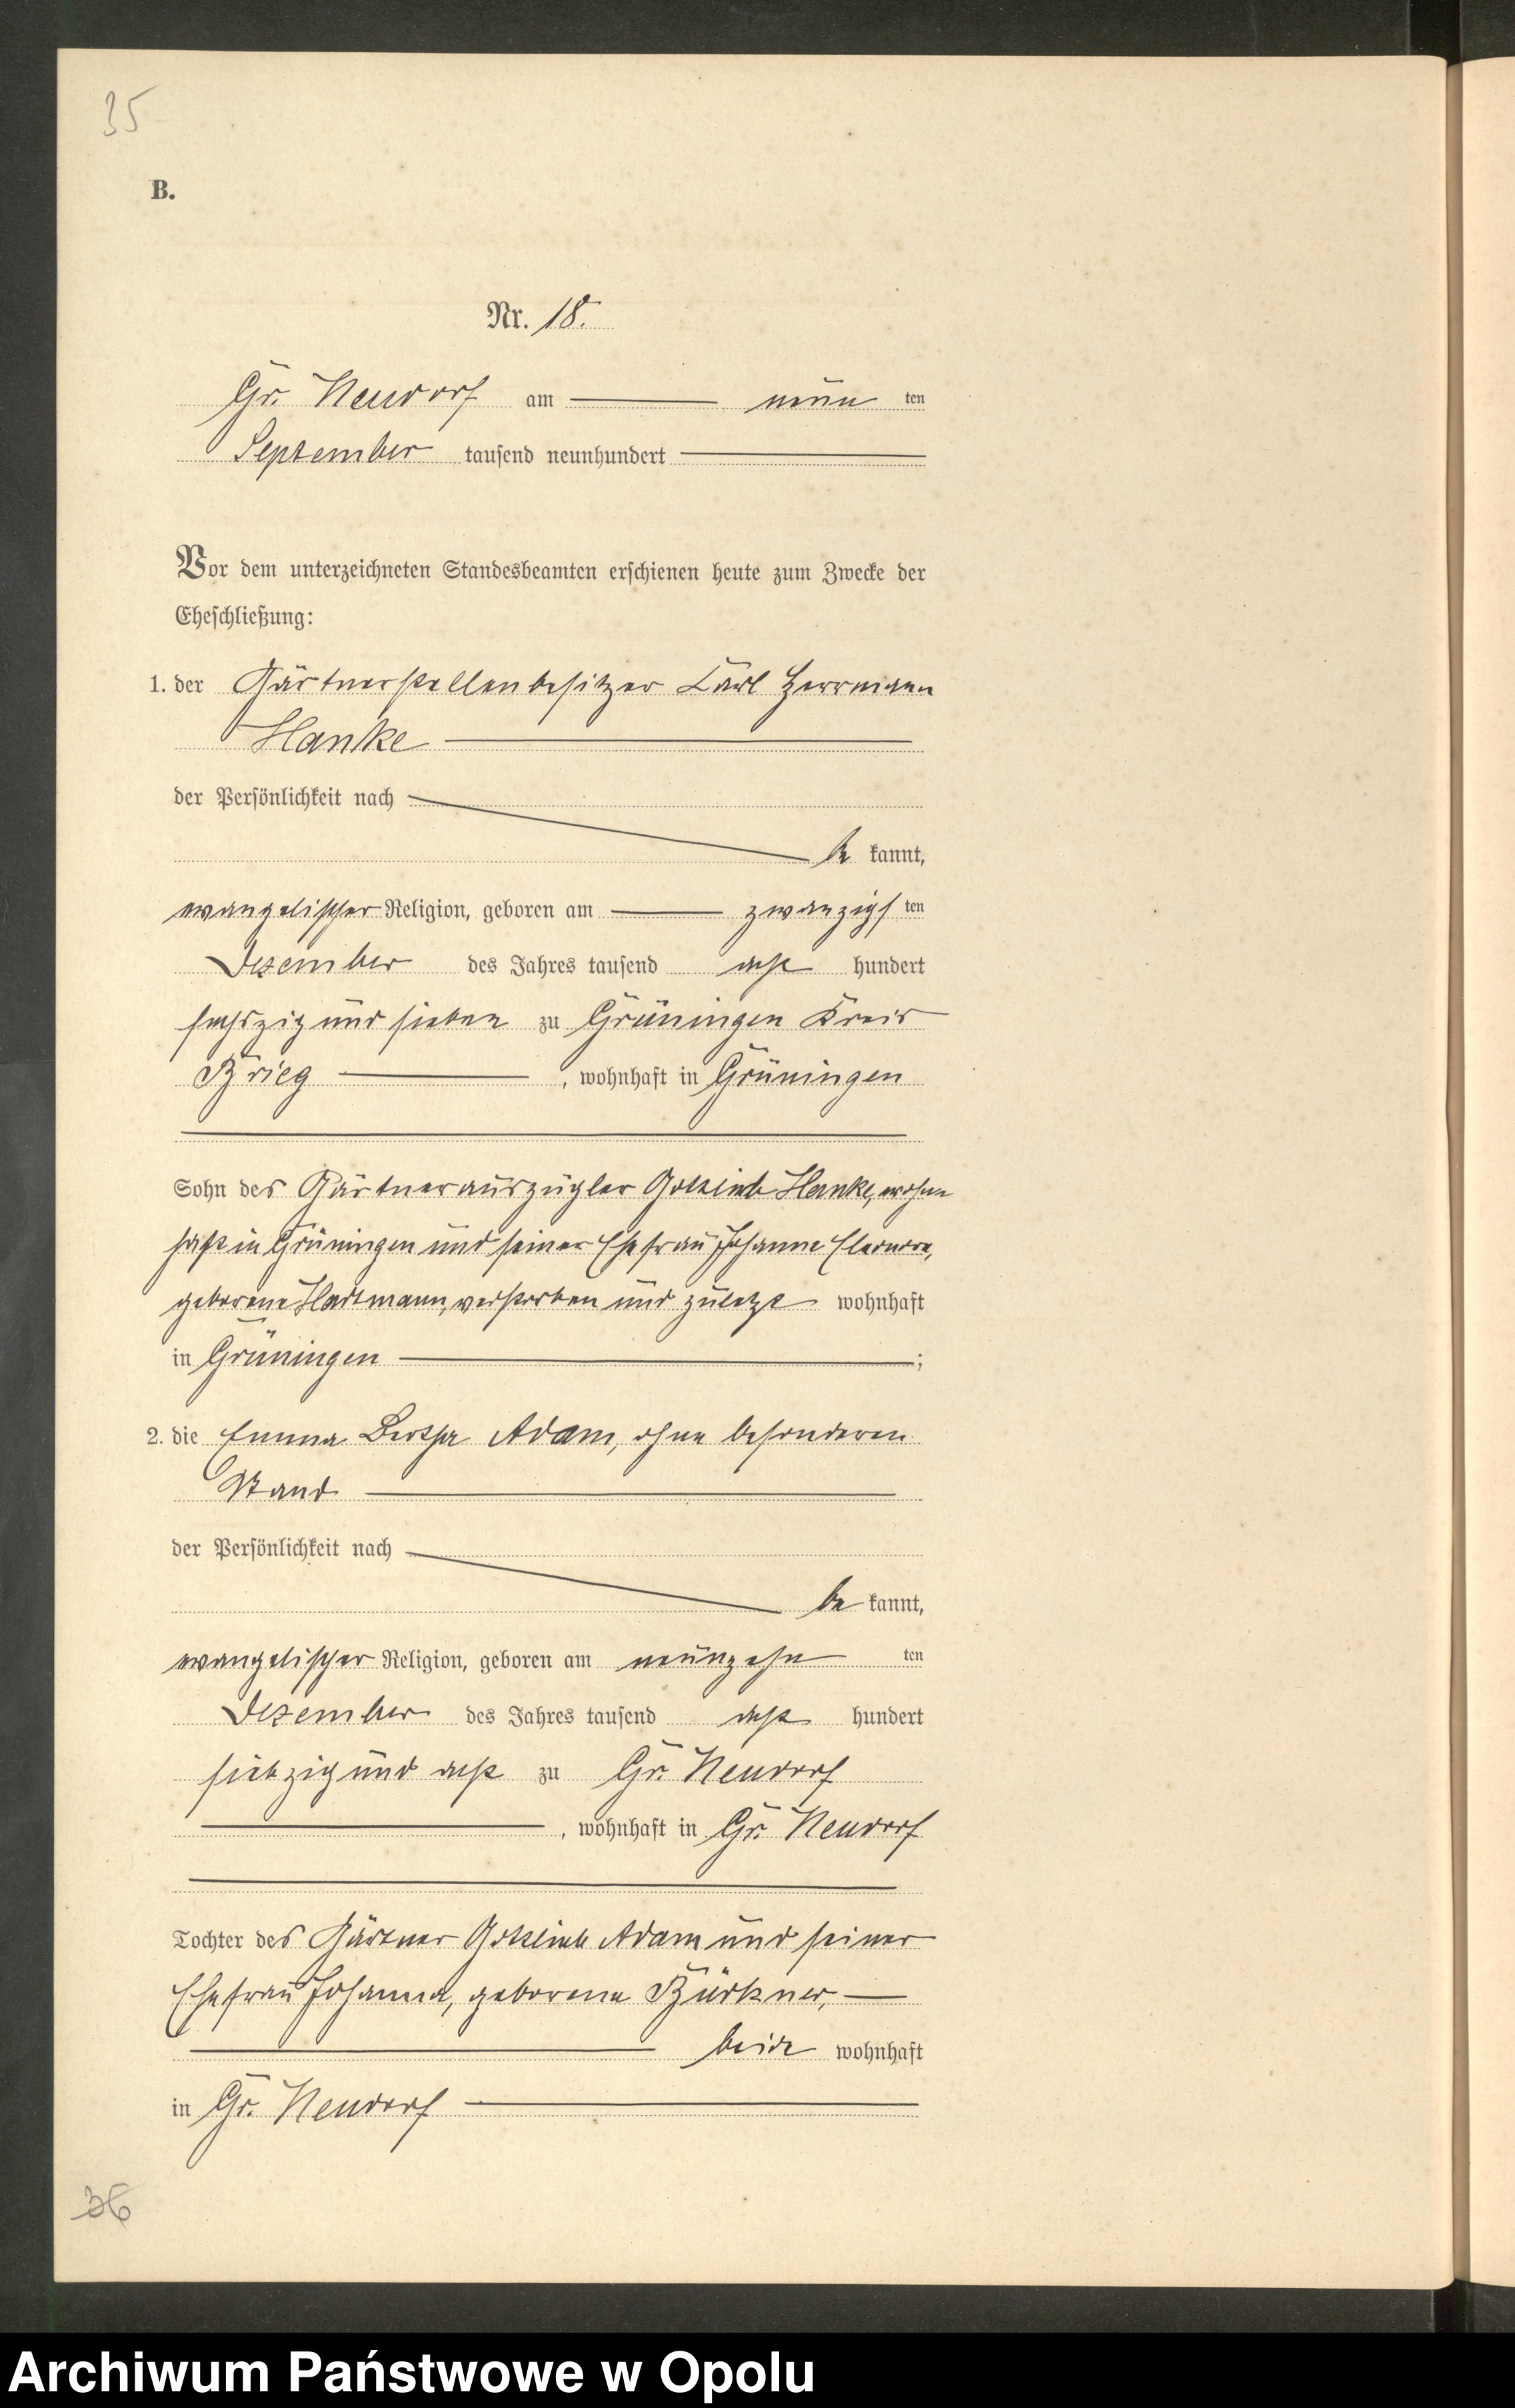 35
B.
Nr. 18.
Gr. Neudorf am neun ten
September tausend neunhundert
Vor dem unterzeichneten Standesbeamten erschienen heute zum Zwecke der
Eheschließung:
1. der Gärtnerstellenbesitzer Karl Herrmann
Hanke
der Persönlichkeit nach
be kannt,
evangelischer Religion, geboren am zwanzigs ten
Dezember des Jahres tausend acht hundert
sechszig und sieben zu Grüningen Kreis
Brieg , wohnhaft in Grüningen
Sohn des Gärtnerauszügler Gottlieb Hanke, wohn
haft in Grüningen und seiner Ehefrau Johanne Eleonore,
geborene Hartmann, verstorben und zuletzt wohnhaft
in Grüningen ;
2. die Emma Bertha Adam, ohne besonderen
Stand
der Persönlichkeit nach
be kannt,
evangelischer Religion, geboren am neunzehn ten
Dezember des Jahres tausend acht hundert
siebzig und acht zu Gr. Neudorf
, wohnhaft in Gr. Neudorf
Tochter des Gärtner Gottlieb Adam und seiner
Ehefrau Johanna, geborene Bürkner,
beide wohnhaft
in Gr. Neudorf
36
Archiwum Państwowe w Opolu